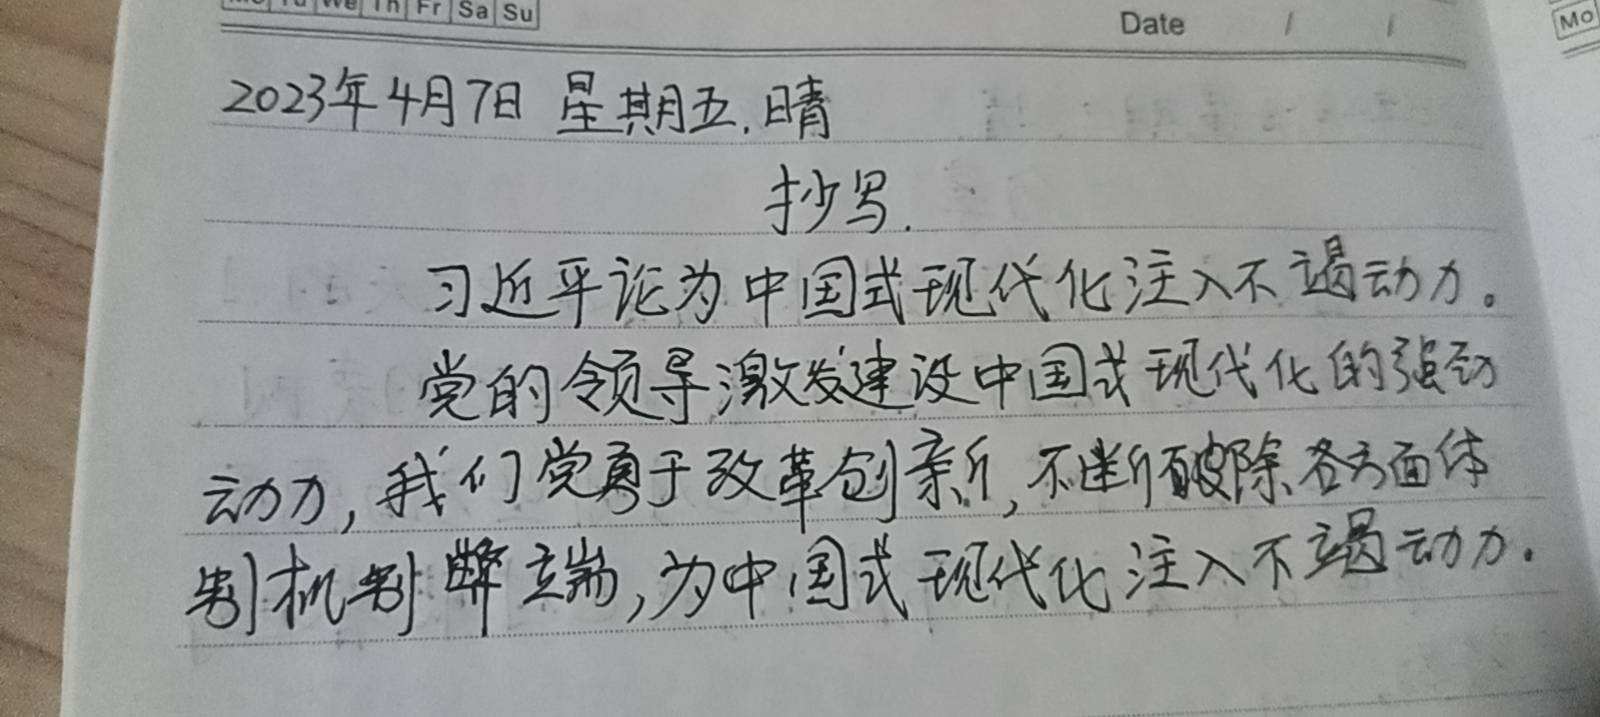 Mo Tu We Th Fr Sa Su
Date / /
Mo
2023年4月7日 星期五.晴
抄写.
习近平论为中国式现代化注入不竭动力。
党的领导激发建设中国式现代化的强劲
动力,我们党勇于改革创新,不断破除各方面体
制机制弊端,为中国式现代化注入不竭动力.